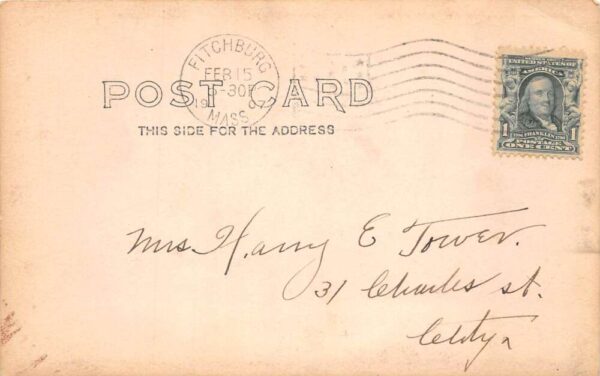 FITCHBURG
FEB 15
-30P
19 07
MASS.
POST CARD
THIS SIDE FOR THE ADDRESS
UNITED STATES OF
AMERICA
1 FRANKLIN 1
POSTAGE
ONE CENT
Mrs. Harry E Tower.
31 Charles st.
City